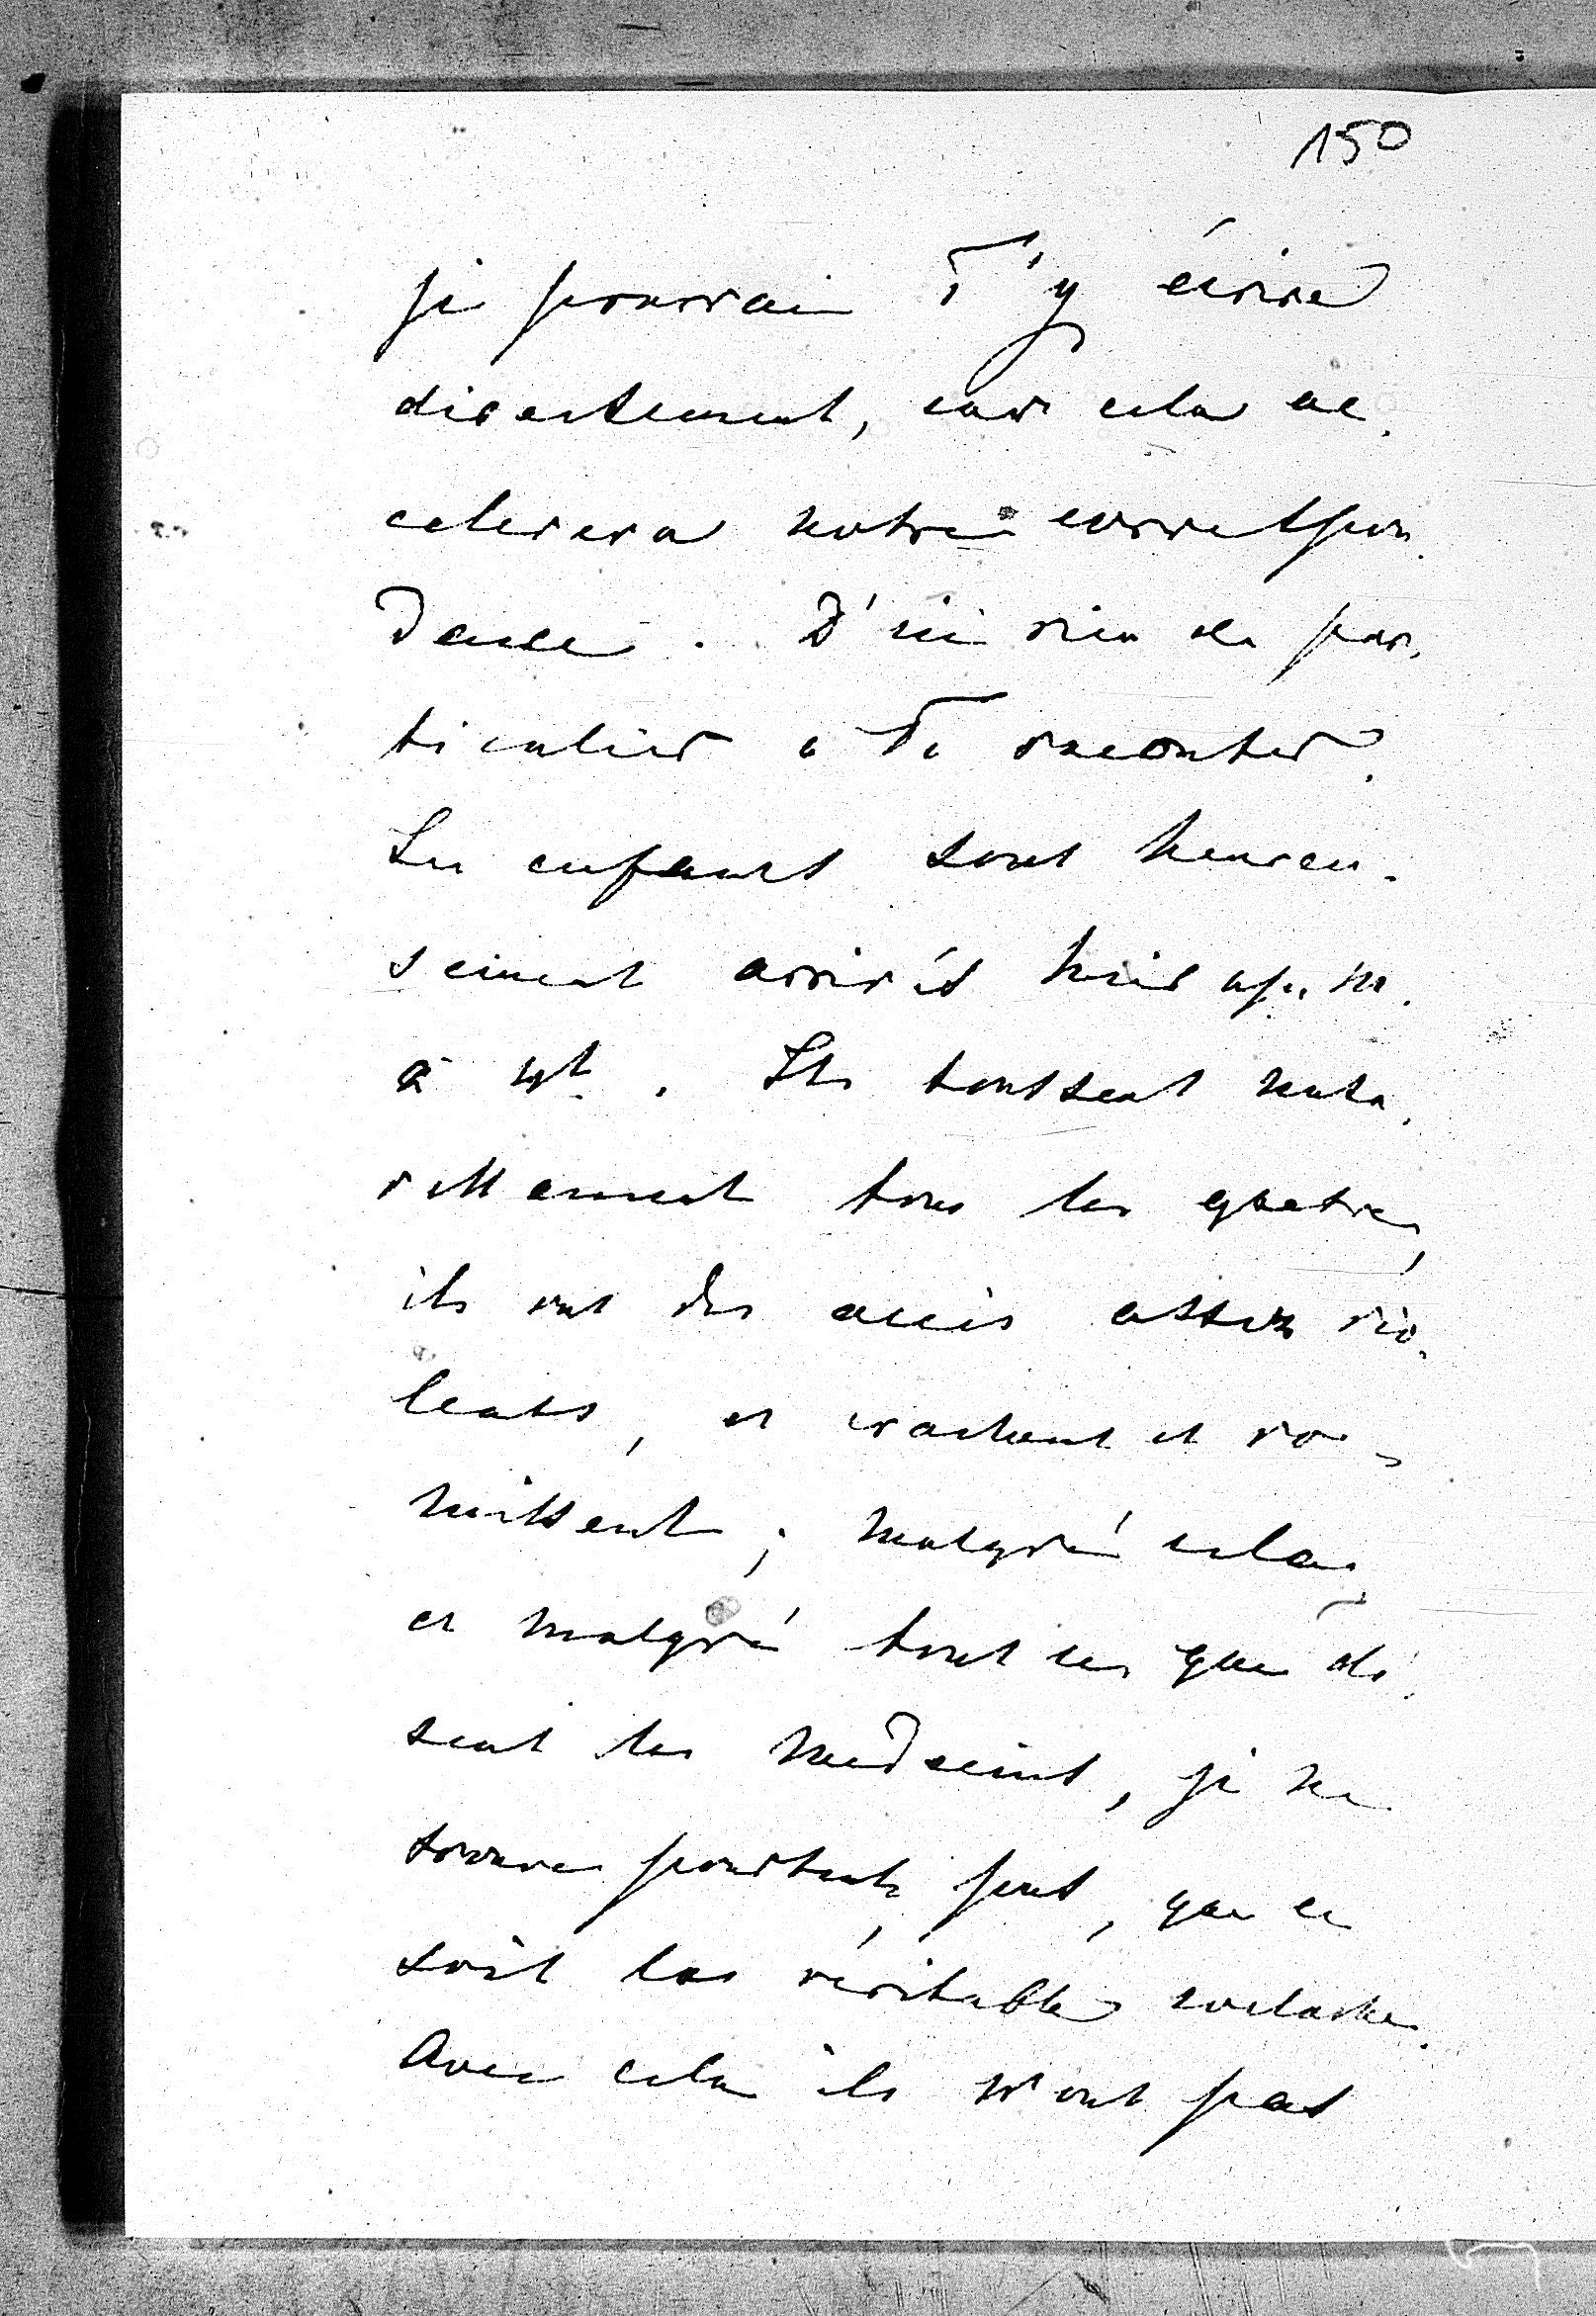 150
je pourrai T'y écrire
directement, car cela ac
celerera notre correspon
dance. D'ici rien de par
ticulier à Te raconter.
Les enfants sont heureu-
sement arrivés hier ap. m.
à 4h. Ils toussent natu
rellement tous les quatre,
ils ont des accès assez vio
lents, et crachent et vo-
missent; malgré cela,
et malgré tout ce que di
sent les medecins, je ne
trouve pourtant, pas, que ce
soit la véritable coclache.
Avec cela ils n'ont pas